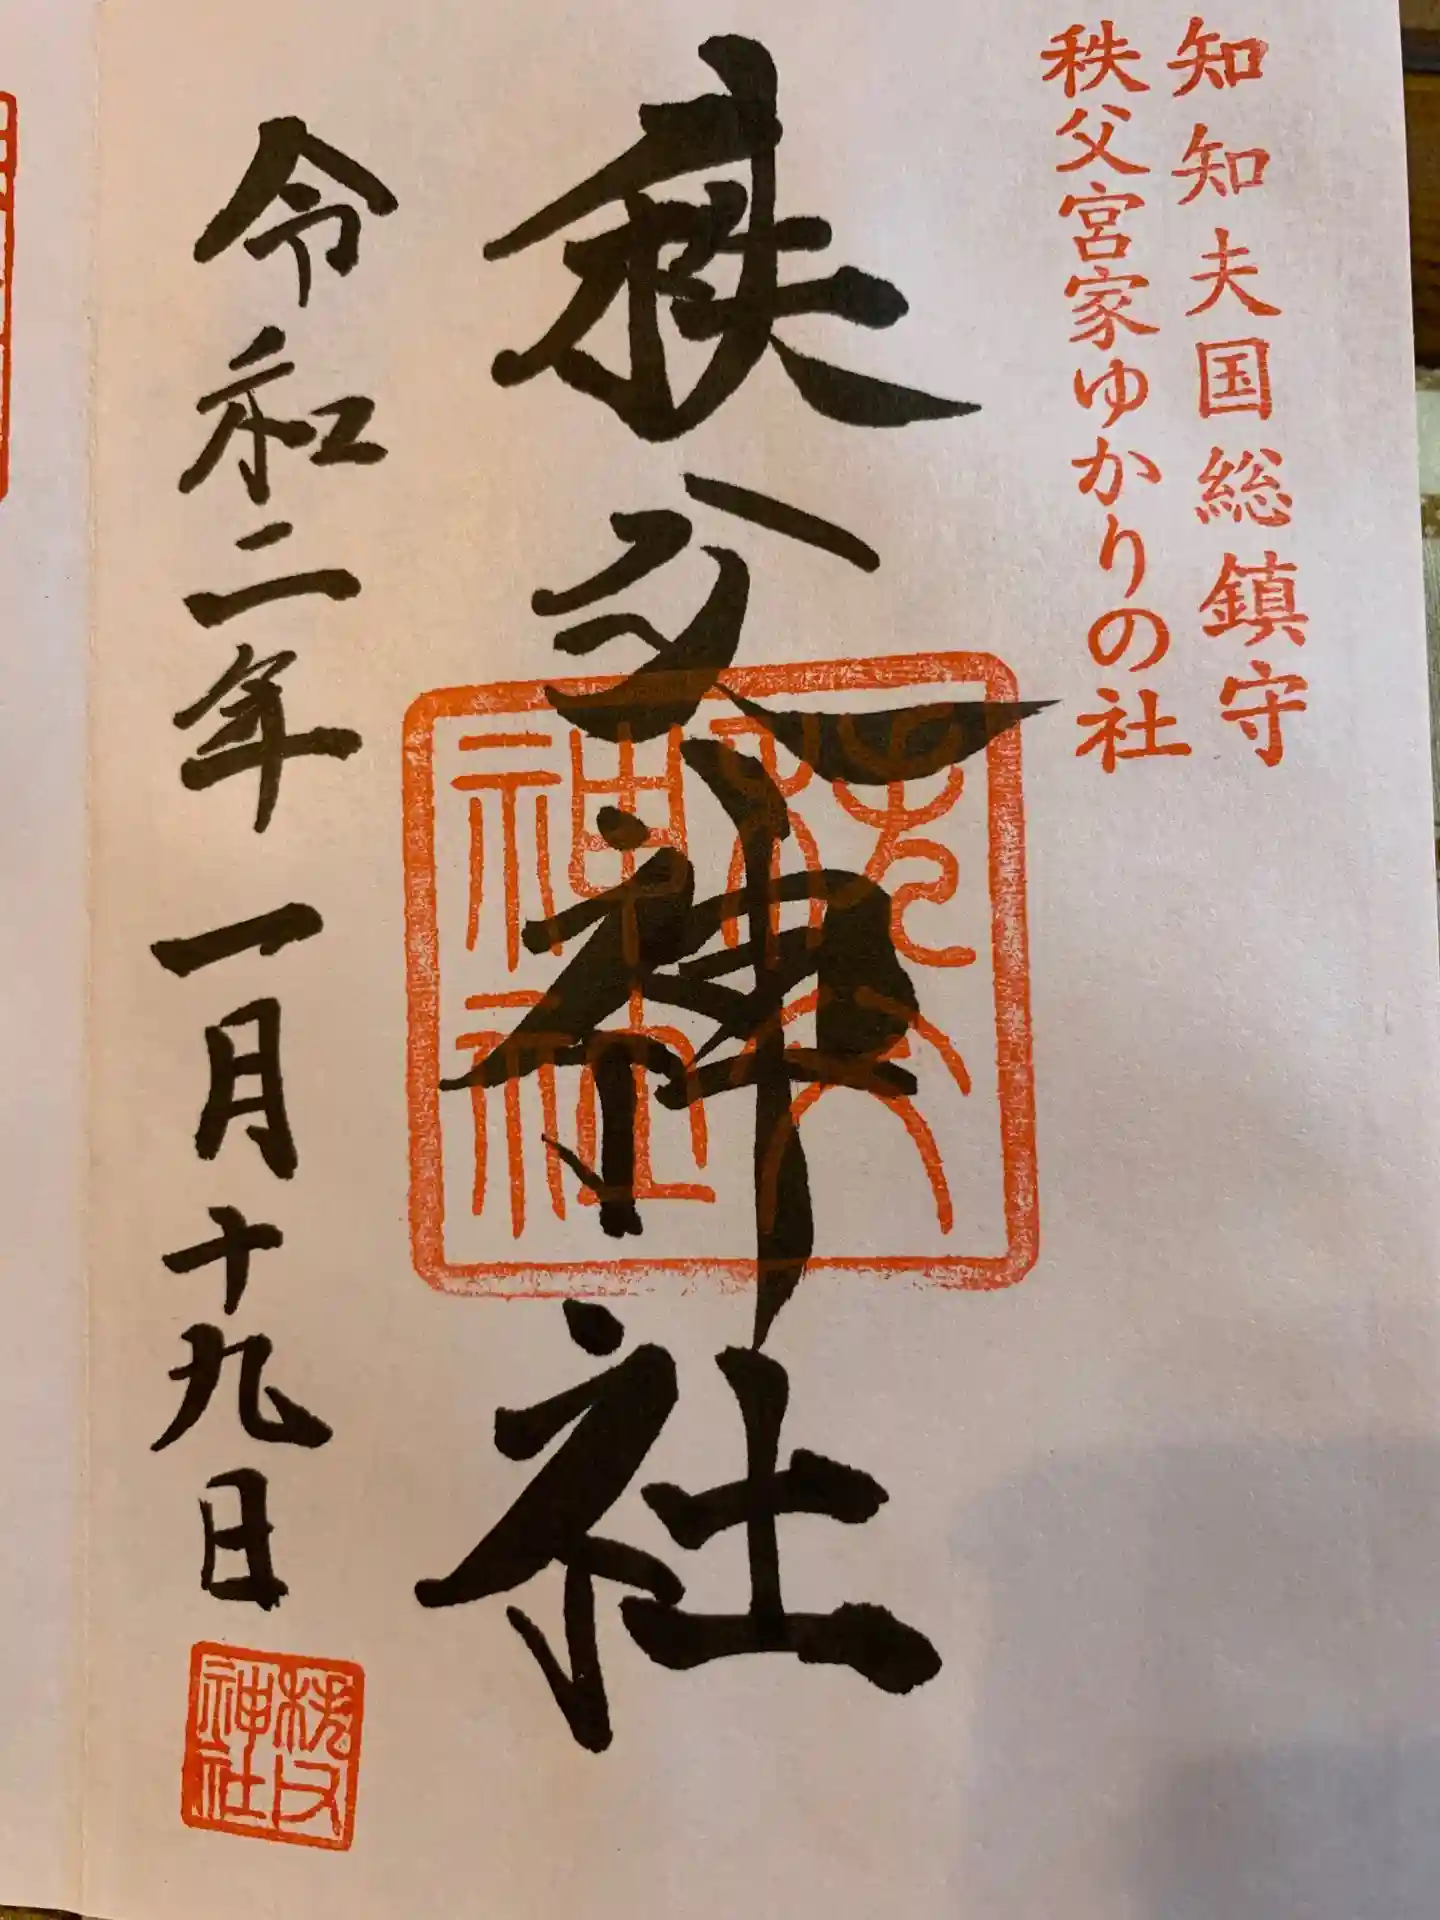 知知夫国総鎮守
秩父宮家ゆかりの社
秩父神社
秩父
神社
令和二年一月十九日
秩父
神社